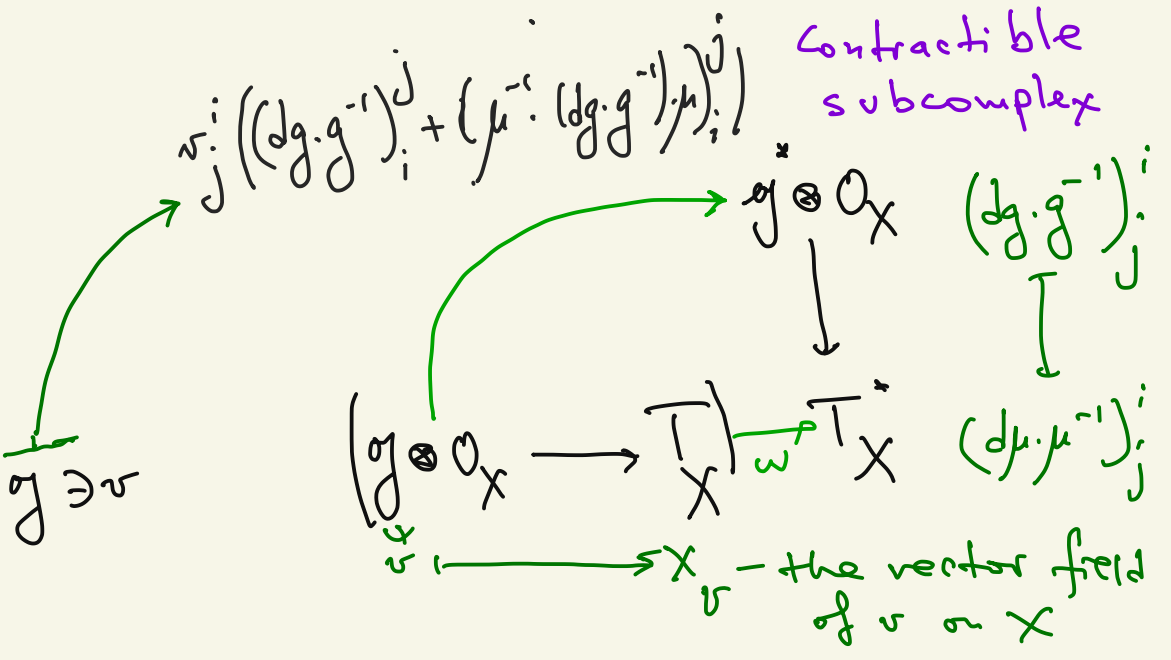 contractible
subcomplex
v^i_j ((dg·g^{-1})^j_i + (μ^{-1}·(dg·g^{-1})·μ)^j_i)
g^* ⊗ O_X
(dg·g^{-1})^i_j
(g ⊗ O_X → T_X) ω T^*_X
(dμ·μ^{-1})^i_j
g ∋ v
v ↦ X_v – the vector field
of v on X